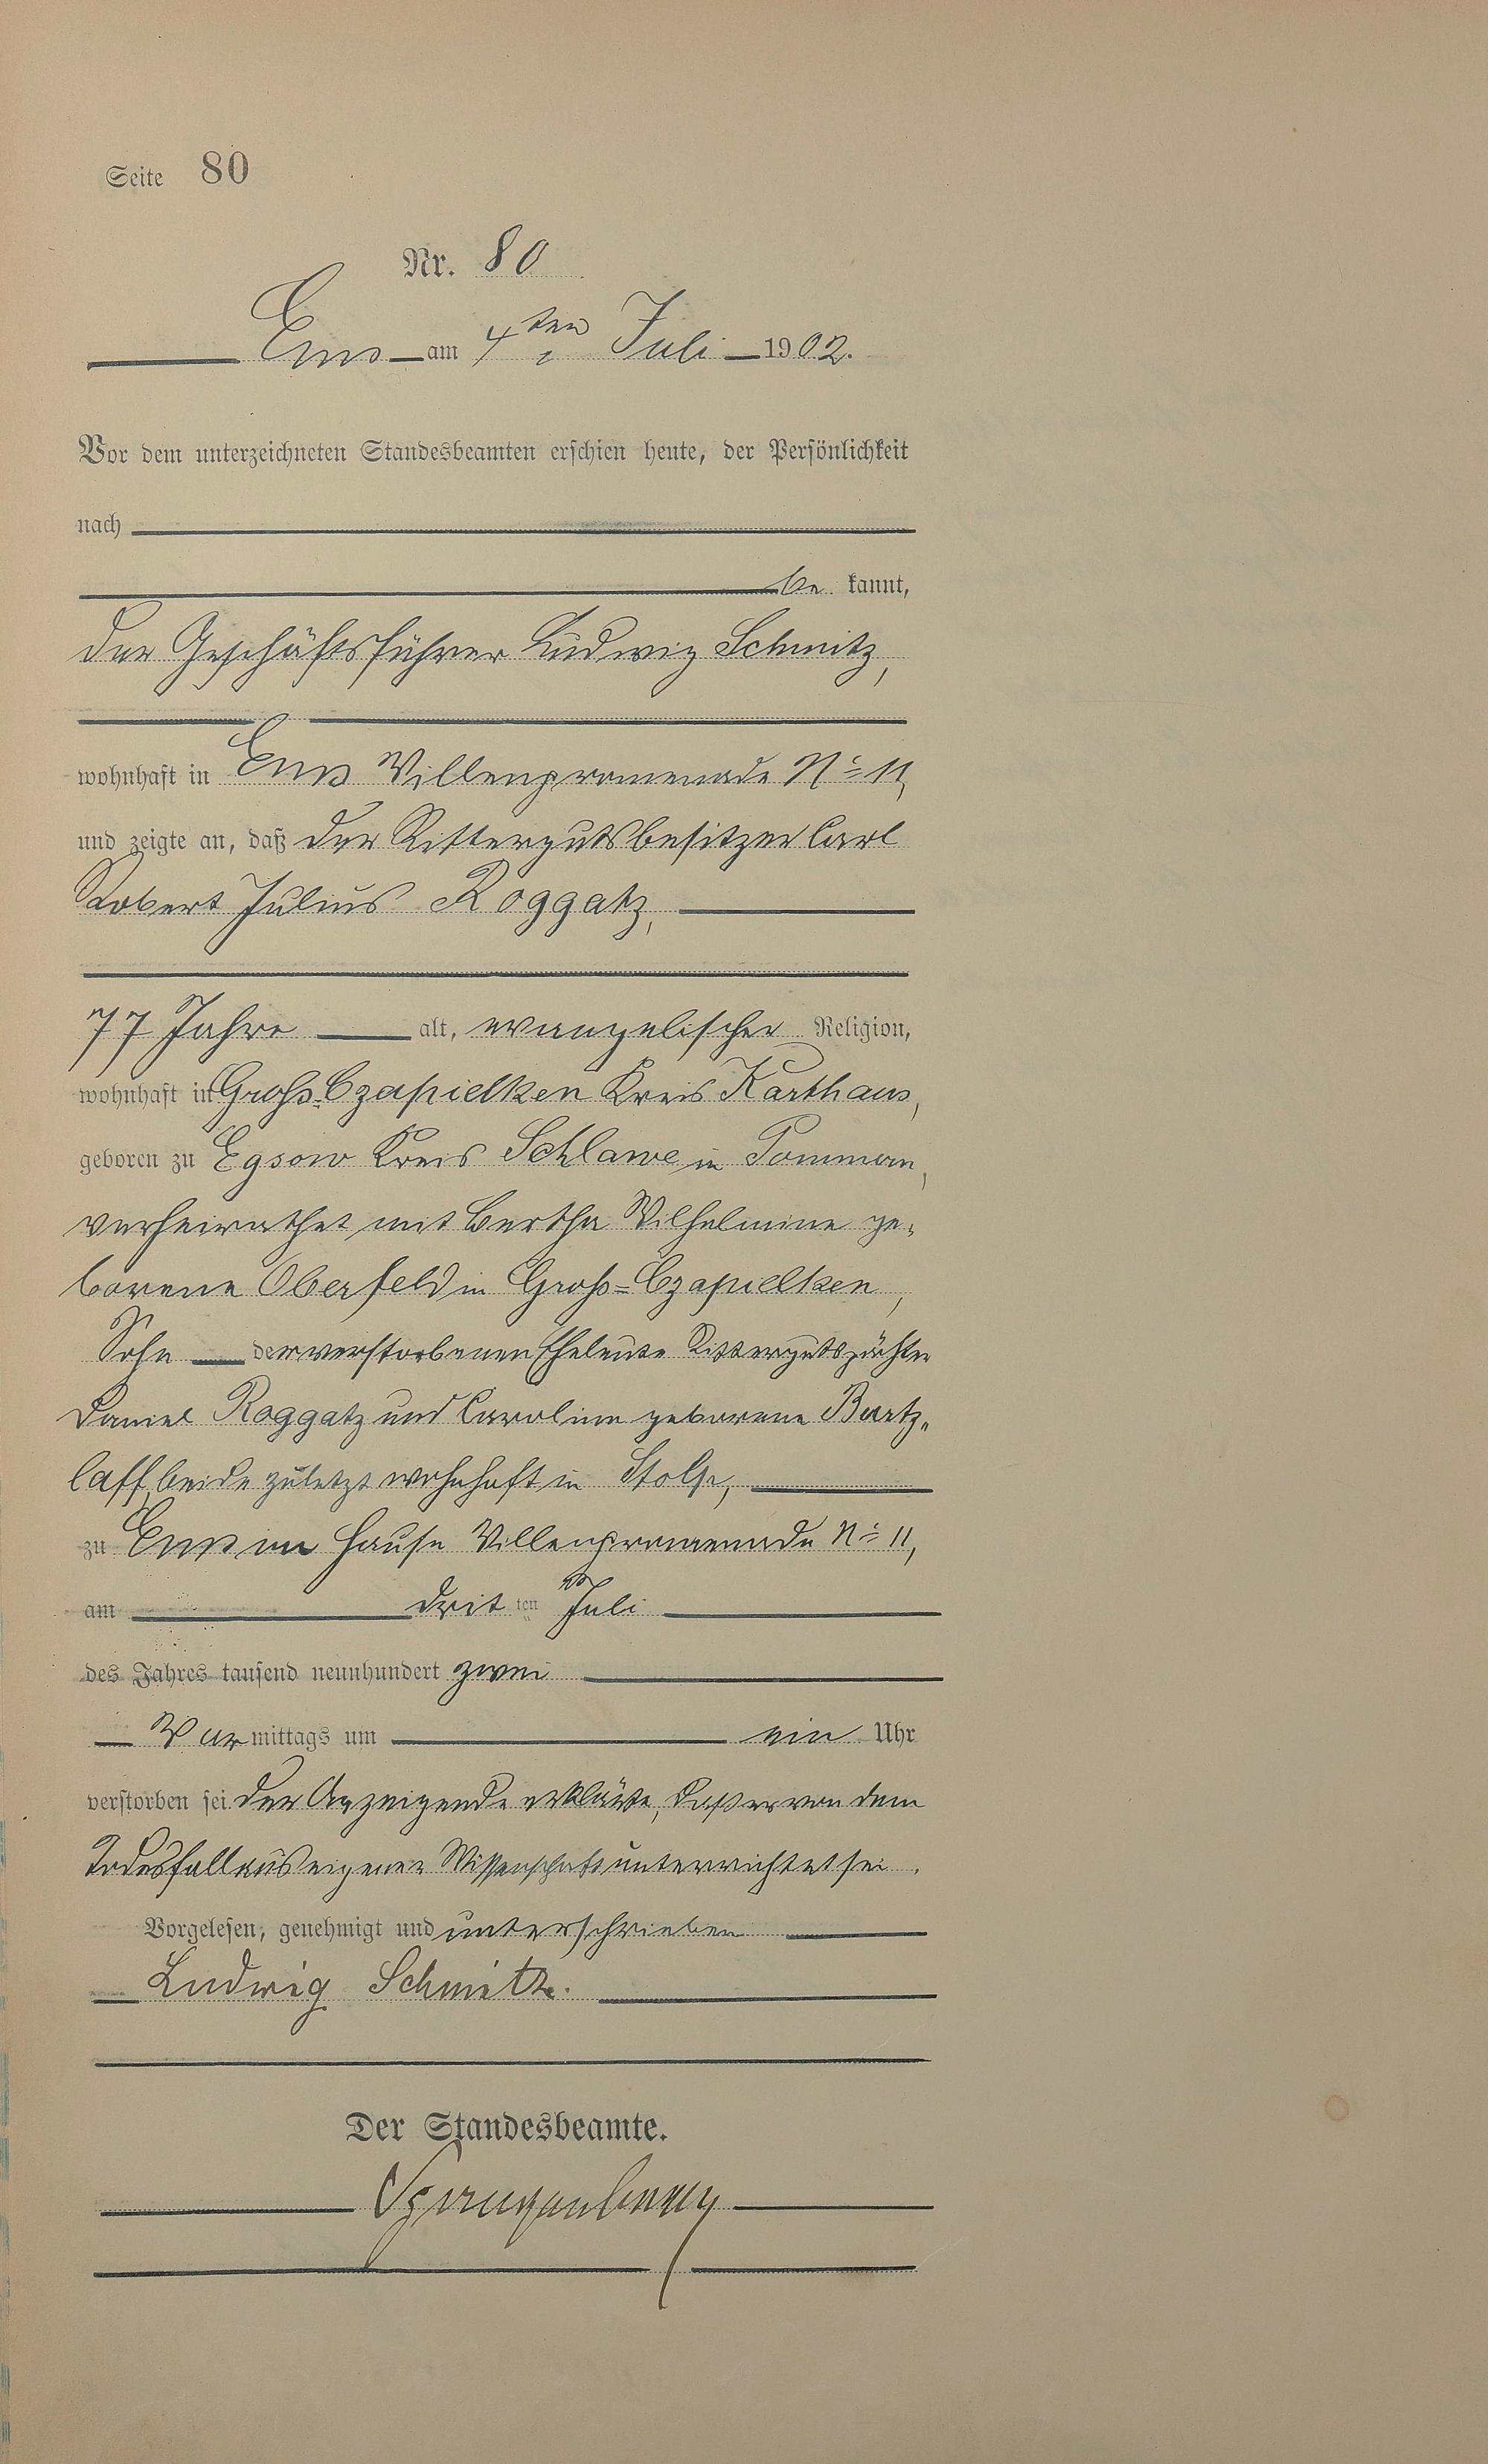 Seite 80
Nr. 80
Ems am 4ten Juli 1902.
Vor dem unterzeichneten Standesbeamten erschien heute, der Persönlichkeit
nach
be kannt,
der Geschäftsführer Ludwig Schmitz,
wohnhaft in Ems Villenpromenade No 11,
und zeigte an, daß der Rittergutsbesitzer Carl
Robert Julius Roggatz,
77 Jahre alt, evangelischer Religion,
wohnhaft in Groß-Czapielken Kreis Karthaus,
geboren zu Egsow Kreis Schlawe in Pommern,
verheirathet mit Bertha Wilhelmine ge-
borene Oberfeld in Groß=Czapielken,
Sohn der verstorbenen Eheleute Rittergutspächter
Daniel Roggatz und Caroline geborene Bartz-
laff, beide zuletzt wohnhaft in Stolp,
zu Ems im Hause Villenpromenade No 11,
am dritten Juli
des Jahres tausend neunhundert zwei
Vormittags um ein Uhr
verstorben sei. Der Anzeigende erklärte, daß er von dem
Todesfall aus eigener Wissenschaft unterrichtet sei.
Vorgelesen, genehmigt und unterschrieben
Ludwig Schmitz.
Der Standesbeamte.